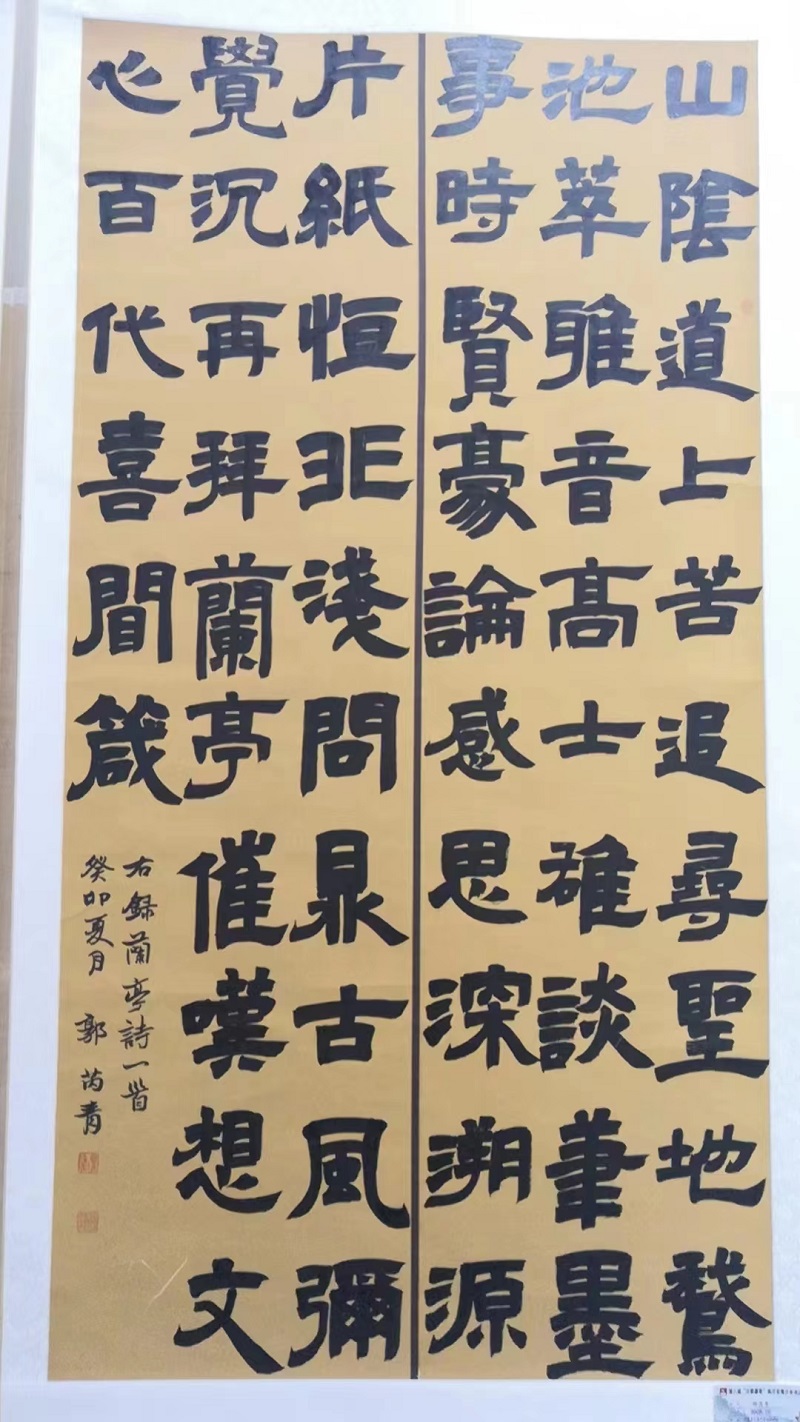 山陰道上苦追尋聖地鵞
池萃雅音高士雄談筆墨
事時賢豪論感思深溯源
片紙恒非淺問鼎古風彌
覺沉再拜蘭亭催嘆想文
心百代喜間箴
右録蘭亭詩一首
癸卯夏月 郭芮青